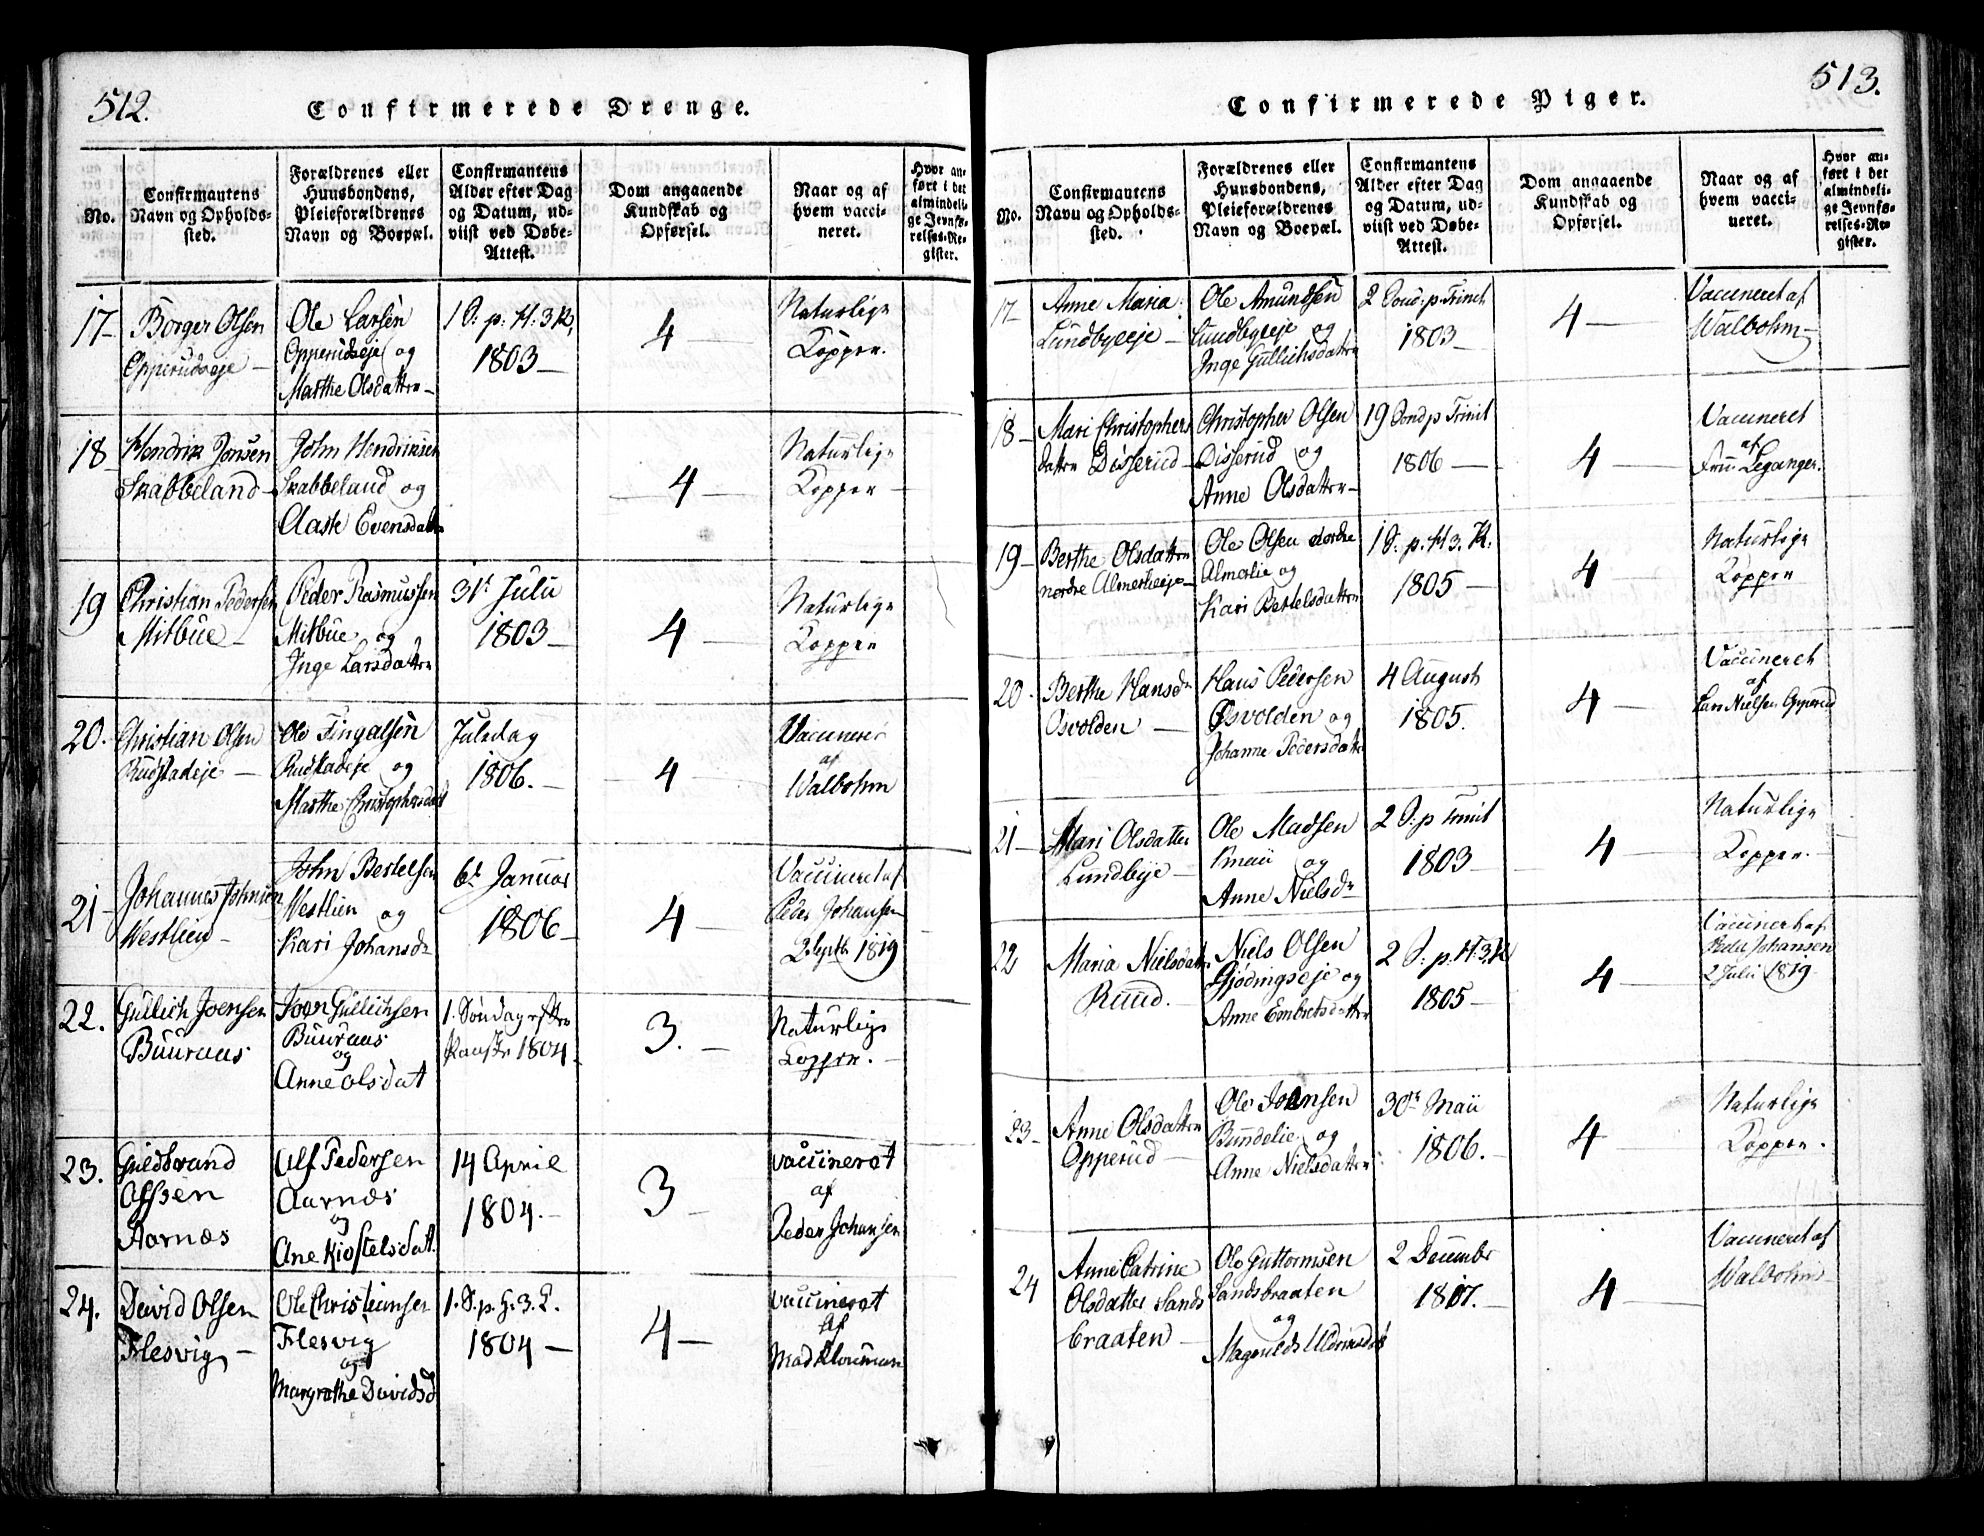 512.
Confirmerede Drenge.
No.
Confirmantens
Navn og Opholds-
sted.
Forældrenes eller
Huusbondens,
Pleieforældrenes
Navn og Boepæl.
Confirmantens
Alder efter Dag
og Datum, ud-
viist ved Døbe-
Attest.
Dom angaaende
Kundskab og
Opførsel.
Naar og af
hvem vacci-
neret.
Hvor an-
ført i det
almindeli-
ge Jevnfø-
relses-Re-
gister.
17-
Borger Olsen
Opperudseje -
Ole Larsen
Opperudseje og
Marthe Olsdatter -
1 S: p: H: 3 K,
1803 -
4 -
Naturlige
Kopper.
18
Hendrik Jonsen
Skabbeland -
John Hendriksen
Skabbeland og
Aaste Evensdatter
- 4 -
Naturlige
Kopper -
19
Christian Pedersen
Mitbue -
Peder Rasmussen
Mitbue og
Inge Larsdatter
31t Julii
1803 -
4 -
Naturlige
Kopper
20.
Christian Olsen
Rustadeje -
Ole Tingalsen
Rustadeje og
Marthe Christophersdat
Juledag
1806. -
- 4 -
Vaccineret
af
Walbohm
21-
Johannes Johnsen
Westlien -
John Bertelsen
Westlien og
Kari Johansd-
6t Januar
1806 -
4 -
Vaccineret af
Peder Johansen
2 Septb. 1819
22.
Gullich Joensen
Buuraas
Joen Gullichsen
Buuraas
og
Anne olsdat
1. Søndag efter
Paaske 1804.
3. -
Naturlige
Kopper. -
23.
Guldbrand
Alfsen
Aarnæs
Alf Pedersen
Aarnæs
og
Ane Kiostelsdat.
14 April
1804. -
3 -
vaccineret
af
Peder Johansen
24.
David Olsen
Flesvig -
Ole Christiansen
Flesvig
og
Margrethe Davidsd
1. S. p. H. 3. K.
1804 -
4 -
vaccineret
af
Mad
513.
Confirmerede Piger.
No.
Confirmantens
Navn og Opholds-
sted.
Forældrenes eller
Huusbondens,
Pleieforældrenes
Navn og Boepæl.
Confirmantens
Alder efter Dag
og Datum, ud-
viist ved Døbe-
Attest.
Dom angaaende
Kundskab og
Opførsel.
Naar og af
hvem vacci-
neret.
Hvor an-
ført i det
almindeli-
ge Jevnfø-
relses-Re-
gister.
17-
Anne Maria
Lundbyeeje -
Ole Amundsen
Lundbyeeje og
Inge Gullichsdatter
2 Sond: p. Trinit
1803 -
4 -
Vaccineret af
Walbohm -
18-
Mari Christophers
datter Disserud -
Christopher Olsen
Disserud og
Anne Olsdatter -
19 Sond p Trinit
1806 -
4 -
Vaccineret
af
Fru Leganger.
19-
Berthe Olsdatter
nordre Almerlieeje -
Ole Olsen nordre
Almerlie og
Kari Bertelsdatter
1 S: p. H 3. K.
1805 -
4 -
Naturlige
Kopper
20.
Berthe Hansd
Osvolden -
Hans Pedersen
Osvolden og
Johanne Pedersdatter
4 August
1805.
4 -
Vaccineret
af
Lars Nielsen Opperud
21-
Mari Olsdatter
Lundbye -
Ole Madsen
og
Anne Nielsd-
2 S: p Trinit
1803 -
4 -
Naturlige
Kopper.
22
Maria Nielsdatter
Ruud.
Niels Olsen
Gjødingseje og
Anne Embretsdatter
2 S: p. H: 3, K
1805 -
4 -
Vaccineret af
Peder Johansen
2 Juli 1819.
23-
Anne Olsdatter
Opperud -
Ole Joensen
Bundelie og
Anne Nielsdatter
30te Maii
1806. -
4 -
Naturlige
Kopper.
24
Anne Catrine
Olsdatter Sands
braaten -
Ole Guttormsen
Sandsbraaten
og
2 Decembr
1807. -
4 -
Vaccineret af
Walbohm -